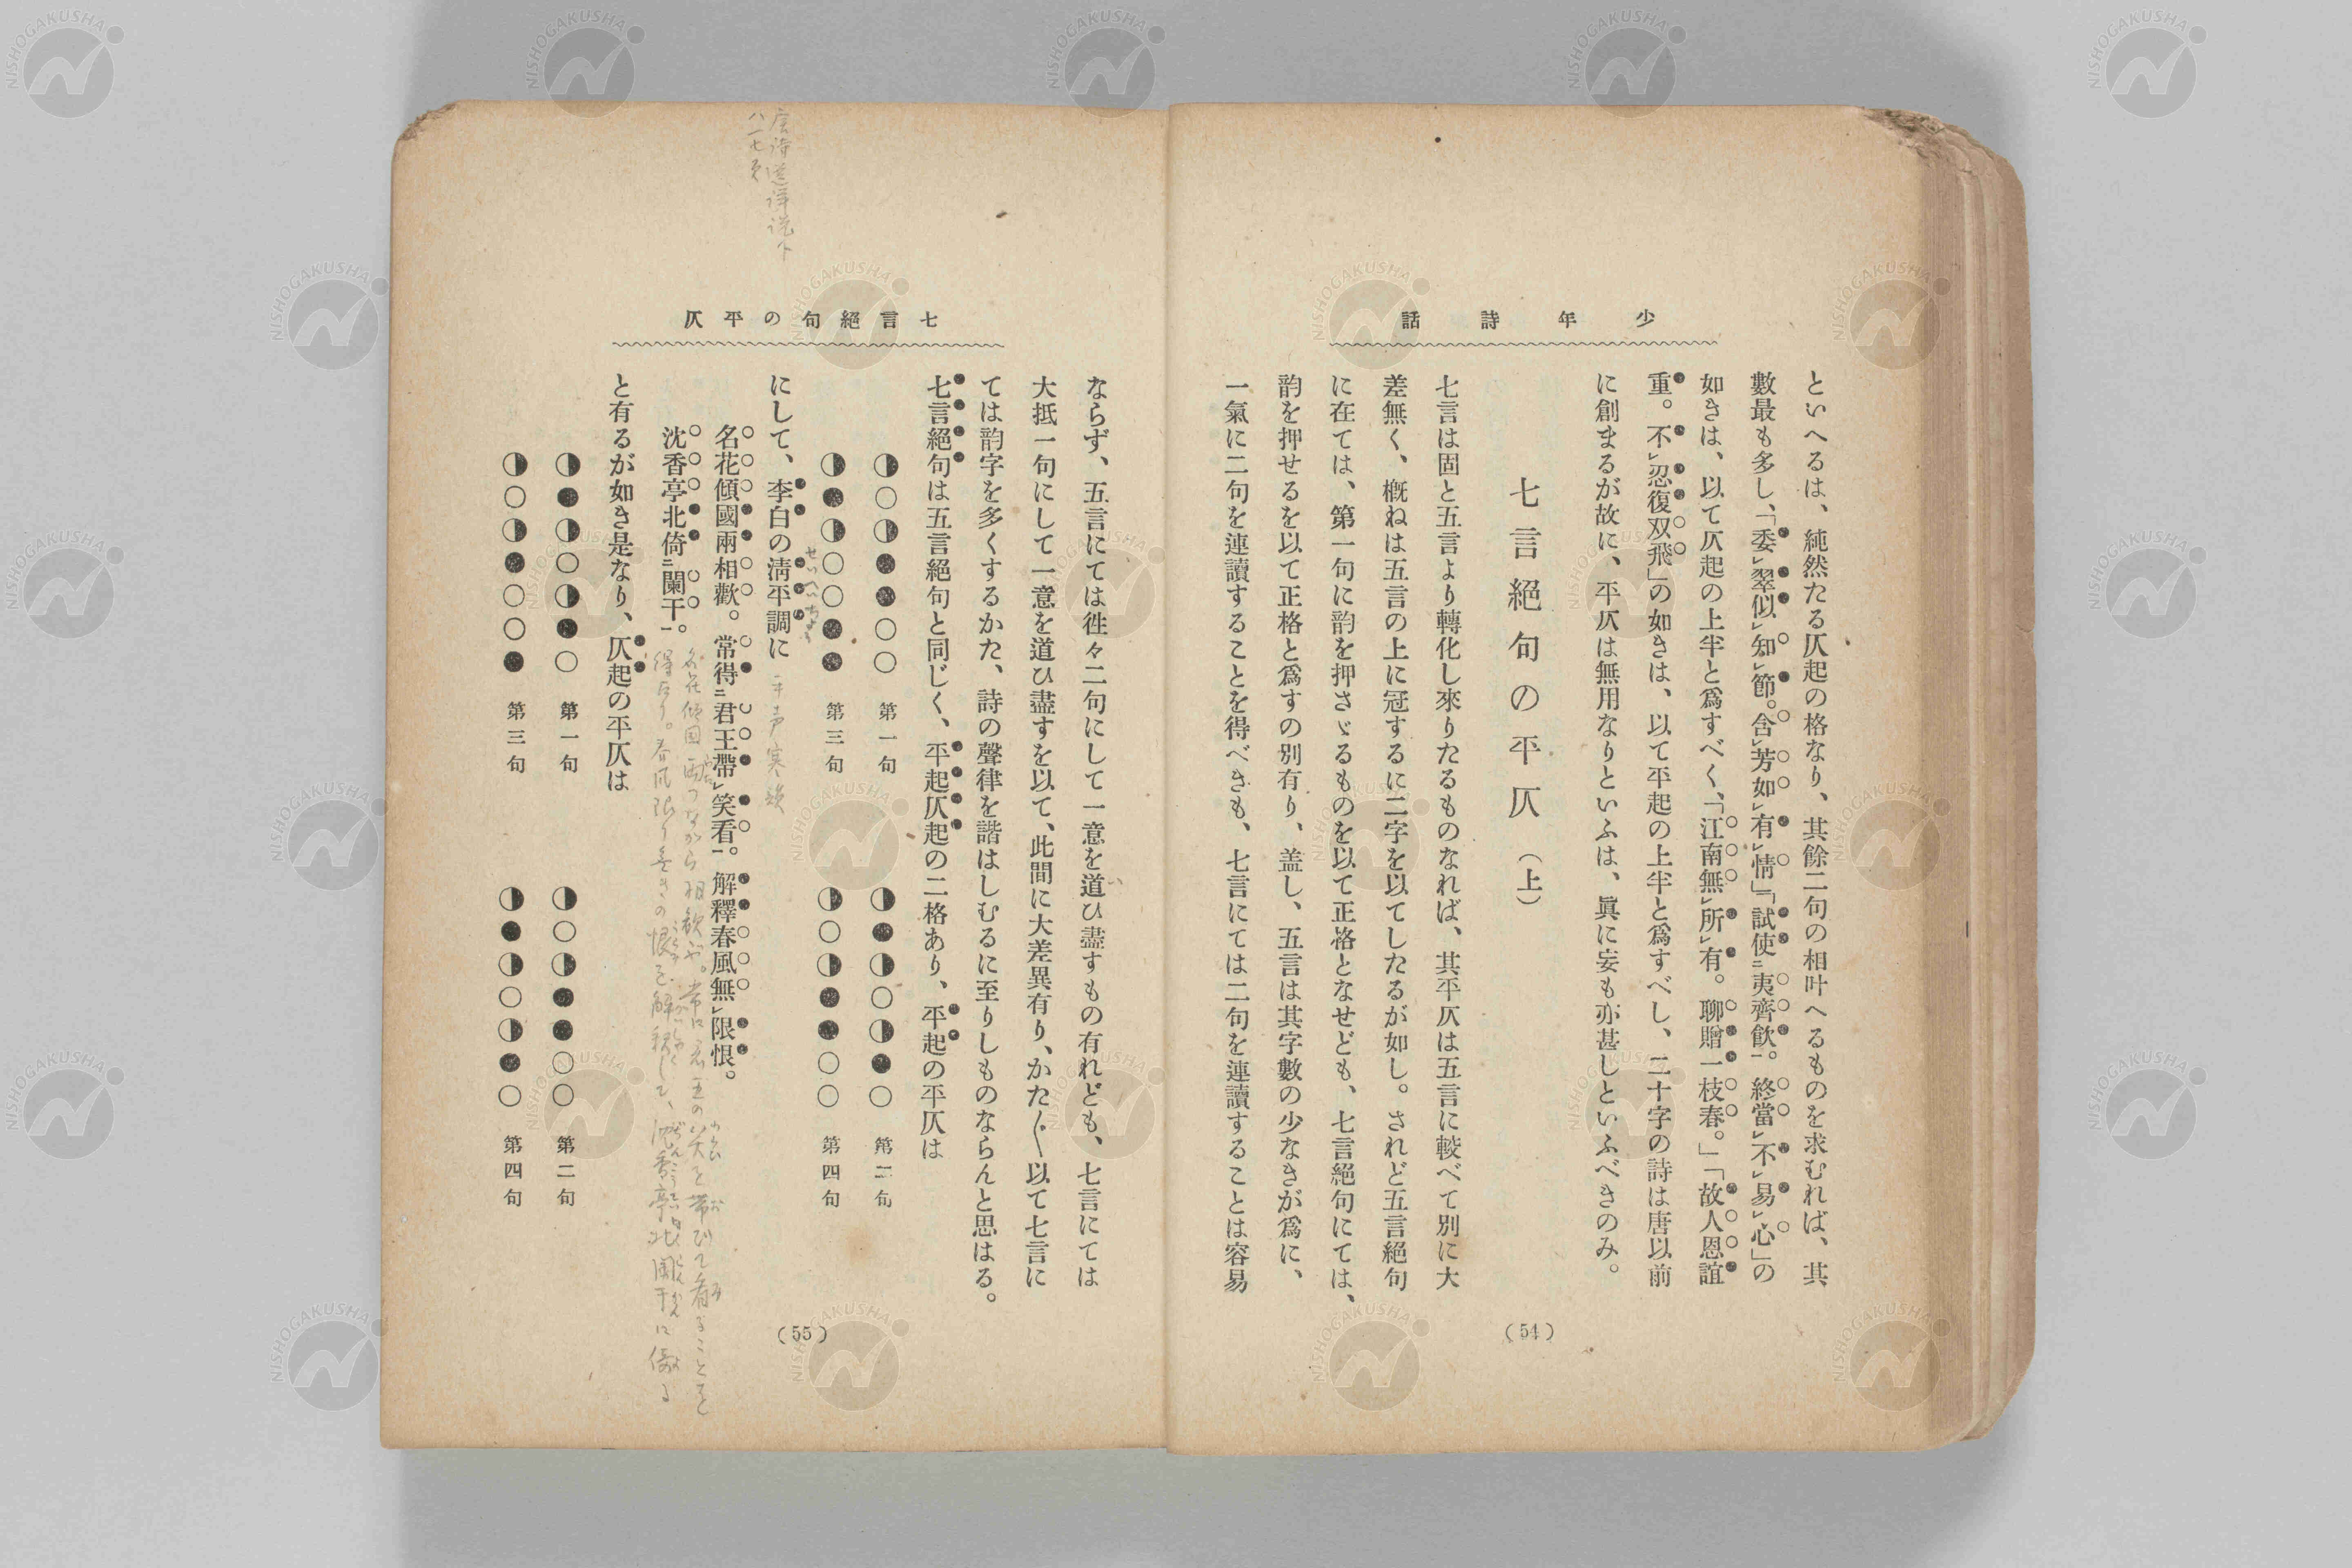 少年詩話
といへるは、純然たる仄起の格なり、其餘二句の相叶へるものを求むれば、其
數最も多し、「委㆑翠似㆑知㆑節。含㆑芳如㆑有㆑情」「試使㆓夷齊飮㆒。終當㆑不㆑易㆑心」の
如きは、以て仄起の上半と爲すべく、「江南無㆑所㆑有。聊贈一枝春。」「故人恩誼
重。不㆑忍復双飛」の如きは、以て平起の上半と爲すべし、二十字の詩は唐以前
に創まるが故に、平仄は無用なりといふは、眞に妄も亦甚しといふべきのみ。
七言絕句の平仄(上)
七言は固と五言より轉化し來りたるものなれば、其平仄は五言に較べて別に大
差無く、槪ねは五言の上に冠するに二字を以てしたるが如し。されど五言絕句
に在ては、第一句に韵を押さゞるものを以て正格となせども、七言絕句にては、
韵を押せるを以て正格と爲すの別有り、蓋し、五言は其字數の少なきが爲に、
一氣に二句を連讀することを得べきも、七言にては二句を連讀することは容易
(54)
七言絕句の平仄
ならず、五言にては徃々二句にして一意を道ひ盡すもの有れども、七言にては
大抵一句にして一意を道ひ盡すを以て、此間に大差異有り、かた〱以て七言に
ては韵字を多くするかた、詩の聲律を諧はしむるに至りしものならんと思はる。
七言絕句は五言絕句と同じく、平起仄起の二格あり、平起の平仄は
◑○◑●●○○ 第一句 ◑●◑○◑●○ 第二句
◑●◑○○●● 第三句 ◑○◑●●○○ 第四句
にして、李白の淸平調に 平声寒韻
せいへいちょう
名花傾國兩相歡。常得㆓君王帶㆑笑看㆒。解釋春風無㆑限恨。
沈香亭北倚㆓闌干㆒。
名花傾国両つながら相歓ぶ。常に君王の笑を帯びて看ることを
得たり。春風限り無きの恨を解釈して、沈香亭北闌干に倚る
と有るが如き是なり、仄起の平仄は
◑●◑○◑●○ 第一句 ◑○◑●●○○ 第二句
◑○◑●○○● 第三句 ◑●◑○◑●○ 第四句
(55)
唐詩選詳説下
八一七頁